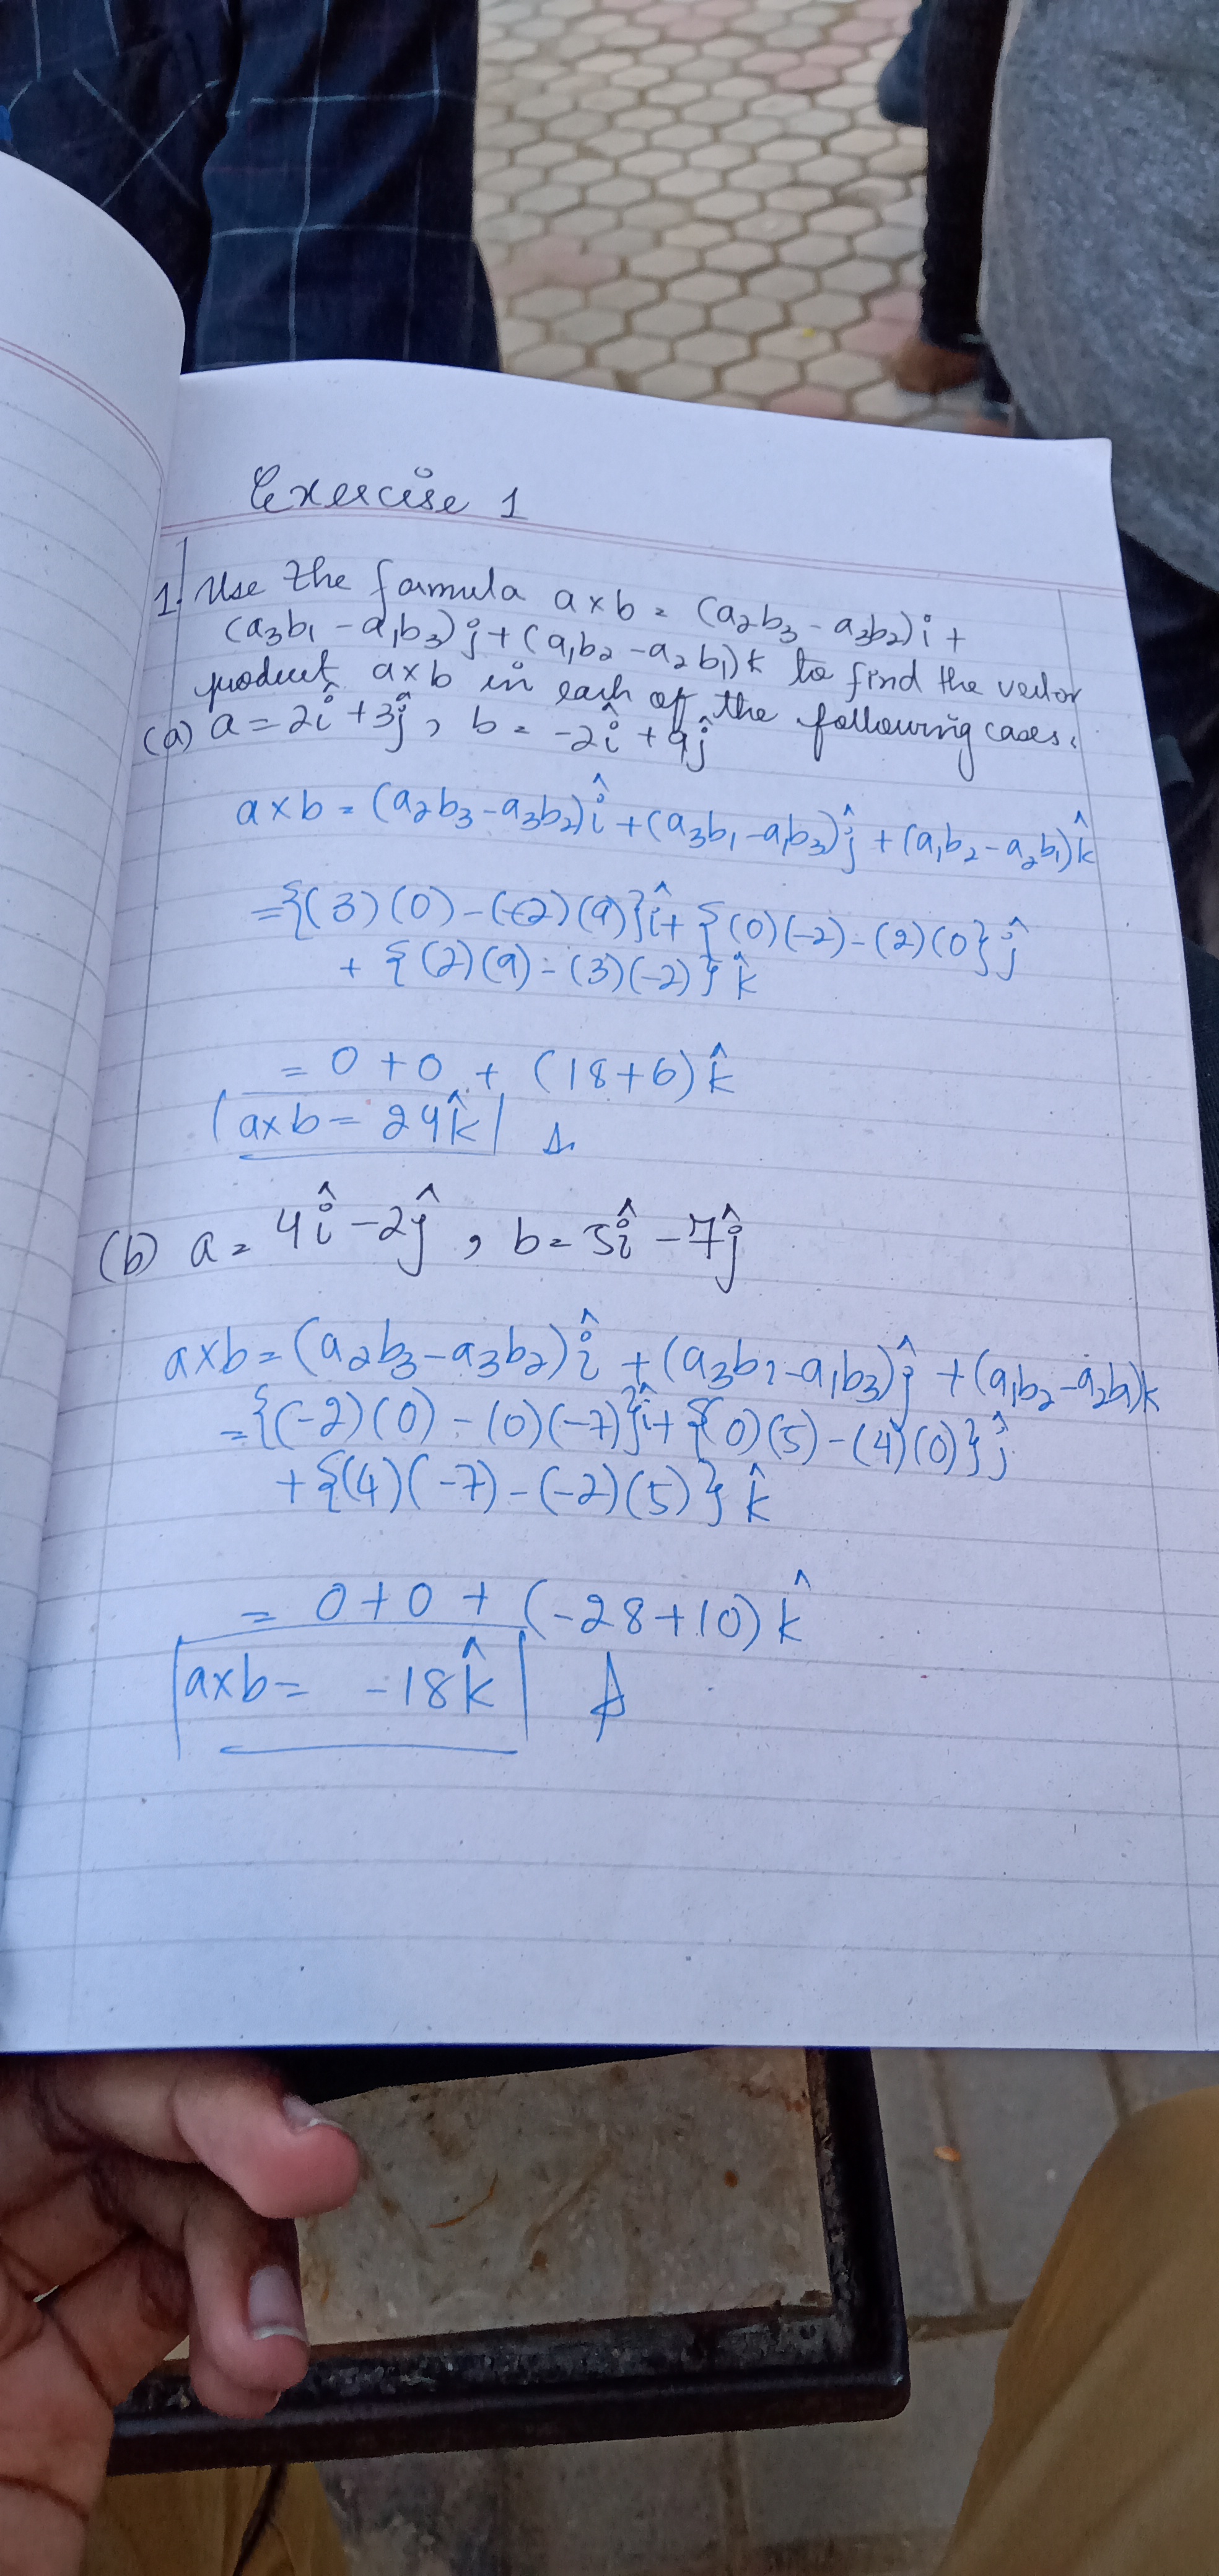 Exercise 1
1. Use the formula a×b = (a₂b₃ - a₃b₂)i +
(a₃b₁ - a₁b₃)j + (a₁b₂ - a₂b₁)k to find the vector
product a×b in each of the following cases.
(a) a = 2î + 3ĵ, b = -2î + 9ĵ
a×b = (a₂b₃ - a₃b₂)î + (a₃b₁ - a₁b₃)ĵ + (a₁b₂ - a₂b₁)k̂
= {(3)(0) - (-2)(9)}î + {(0)(-2) - (2)(0)}ĵ
+ {(2)(9) - (3)(-2)}k̂
= 0 + 0 + (18+6)k̂
a×b = 24k̂
(b) a = 4î - 2ĵ, b = 5î - 7ĵ
a×b = (a₂b₃ - a₃b₂)î + (a₃b₁ - a₁b₃)ĵ + (a₁b₂ - a₂b₁)k
= {(-2)(0) - (0)(-7)}î + {(0)(5) - (4)(0)}ĵ
+ {(4)(-7) - (-2)(5)}k̂
= 0 + 0 + (-28+10)k̂
a×b = -18k̂